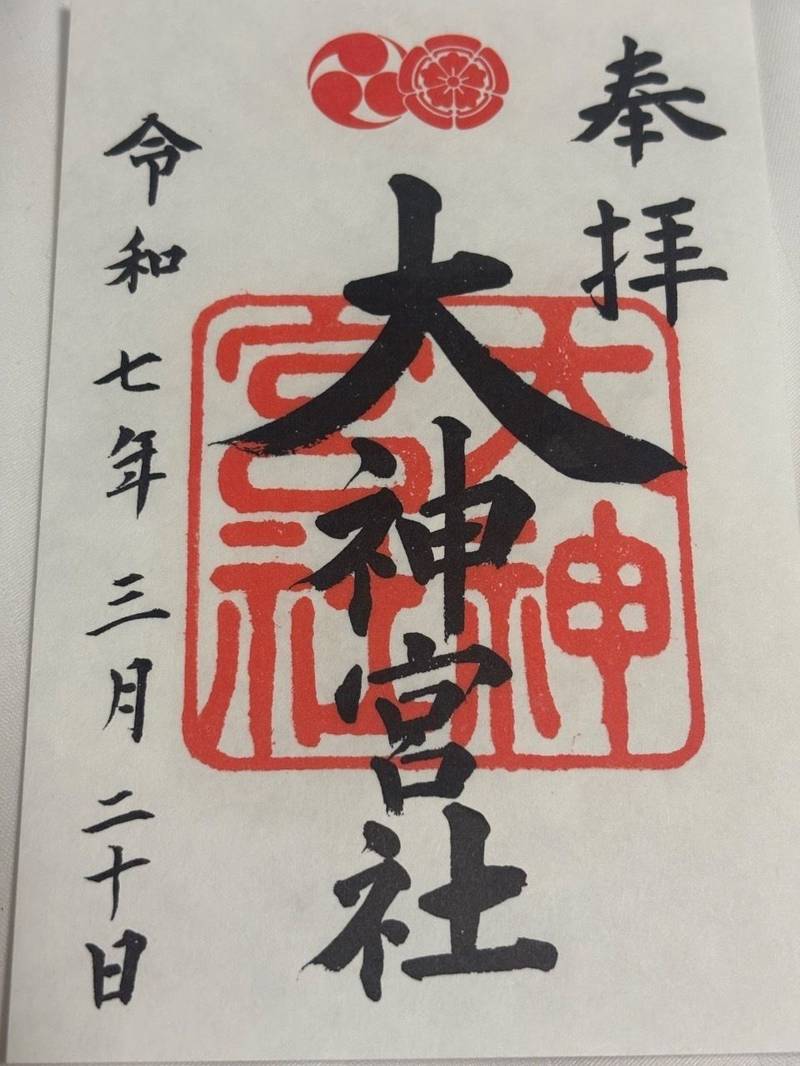 奉拝
大神宮社
大神宮社
令和七年三月二十日